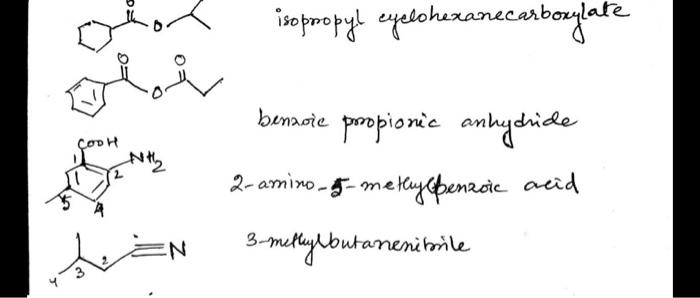 O
O
isopropyl cyclohexanecarboxylate
O
O
O
benzoic propionic anhydride
COOH
1
NH2
2
5
4
2-amino-5-methylbenzoic acid
N
2
3
4
3-methylbutanenitrile